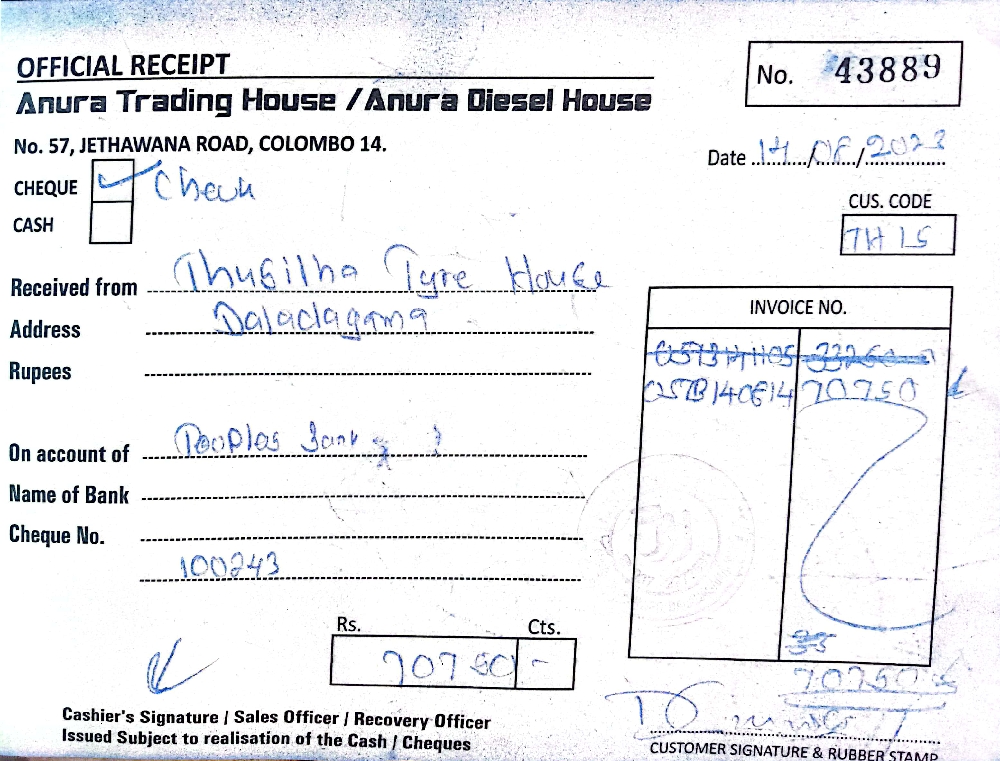 OFFICIAL RECEIPT
No. 43889
Anura Trading House / Anura Diesel House
No. 57, JETHAWANA ROAD, COLOMBO 14.
Date 14/08/2023
CHEQUE
CASH
CUS. CODE
TH 15
Received from Thusilha Tyre House
Address Daladagama
Rupees
INVOICE NO.
70750
On account of Peoples Bank
Name of Bank
Cheque No.
100243
Rs. Cts.
70750 -
70750
Cashier's Signature / Sales Officer / Recovery Officer
Issued Subject to realisation of the Cash / Cheques
CUSTOMER SIGNATURE & RUBBER STAMP